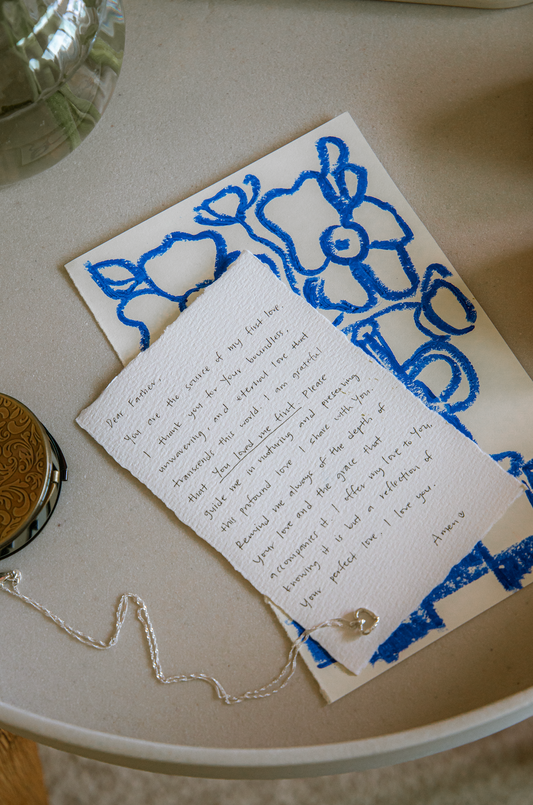 Dear Father,
You are the source of my first love.
I thank you for Your boundless,
unwavering, and eternal love that
transcends this world. I am grateful
that You loved me first. Please
guide me in nurturing and preserving
this profound love I share with You.
Remind me always of the depth of
Your love and the grace that
accompanies it. I offer my love to You,
knowing it is but a reflection of
Your perfect love. I love you.
Amen ♡